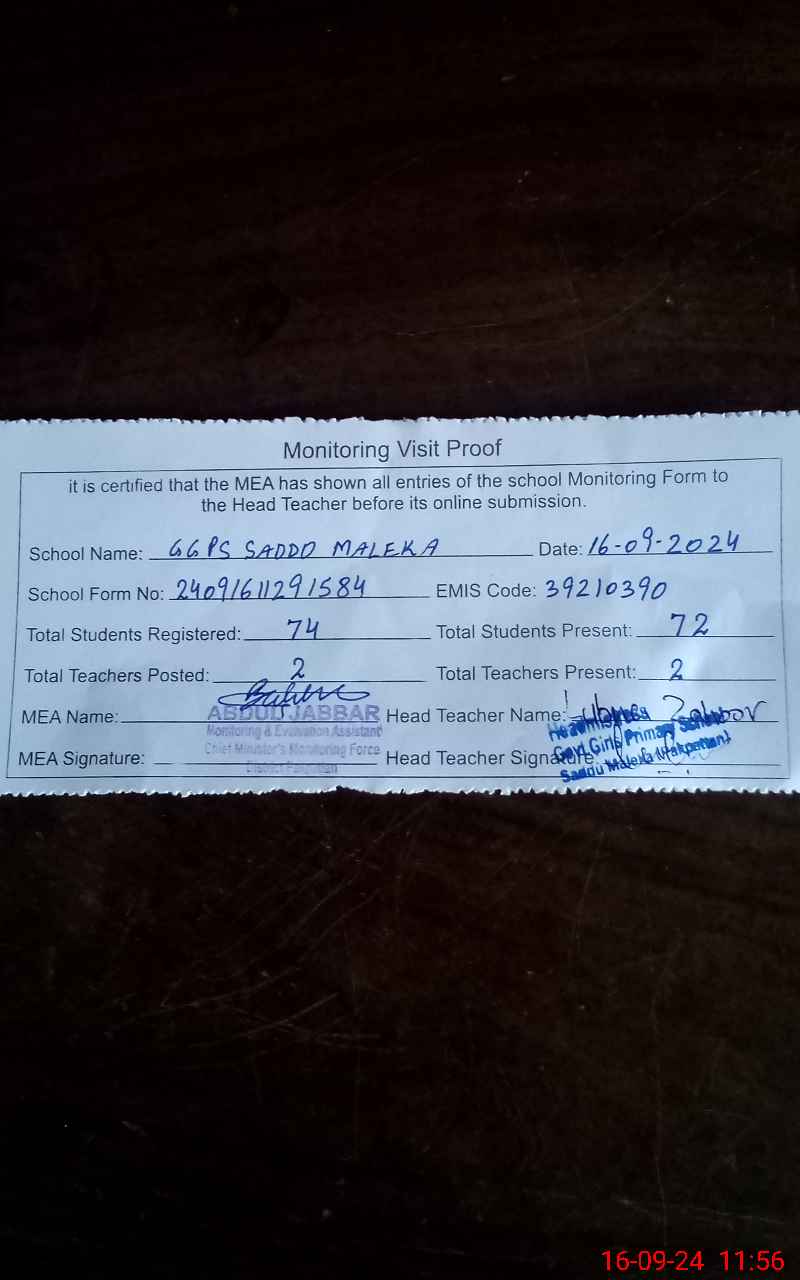 Monitoring Visit Proof
it is certified that the MEA has shown all entries of the school Monitoring Form to
the Head Teacher before its online submission.
School Name: GGPS SADDO MALEKA Date: 16-09-2024
School Form No: 24091611291584 EMIS Code: 39210390
Total Students Registered: 74 Total Students Present: 72
Total Teachers Posted: 2 Total Teachers Present: 2
MEA Name: ABDUL JABBAR Head Teacher Name:
Monitoring & Evaluation Assistant
Chief Minister's Monitoring Force
District Pakpattan
MEA Signature: Head Teacher Signature:
Headmistress
Govt. Girls Primary School
Saddu Maleka (Pakpattan)
16-09-24 11:56